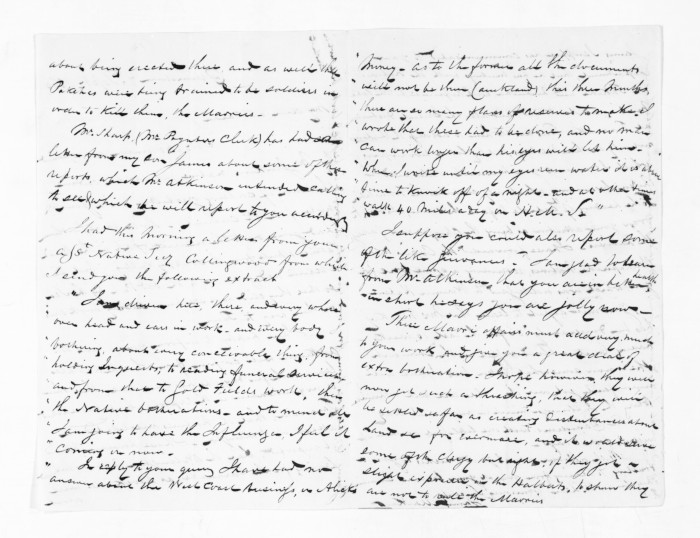 about being erected there and as well the
Pakehas were being trained to be soldiers in
order to kill them, the Maories.
Mr Sharp (Mr Poynters Clerk) has had a
letter from my son James about some of the
reports, which Mr Atkinson intended calling
to see & which he will report to you accordingly
I had this morning a letter from your
Native of Collingwood from which
I send you the following extract
"I am driven here, there and every where
"over head and ears in work and every body
"bothering about every conceivable thing, from
holding Inquests, to reading funeral services
and from then to Gold Fields work, then
"the Native botherations and to mend all
"I am going to have the Influenza, I feel it
"coming on now.
In reply to your query I have had no
answer about the West Coast Business, or Abels
"Money. As to the former all the documents
"will not be then (Auckland) this three Months,
"there are so many plans of reserves to make. I
"wrote that these had to be done, and no man
"can work longer than his eyes will let him.
"When I work until my eyes run water it is about
"time to knock off of a night and at other times
"walk 40 miles a day on H.M.S."
I suppose you could also report some
of the like grievances? I am glad to hear
from Mr Atkinson, that you are in better health
in short he says you are jolly now.
This Maori affair must add very much
to your work and give you a great deal of
extra botheration. I hope however they will
now get such a thrashing, that they will
be settled as far as creating disturbances about
land for evermore, and it would serve
some of the clergy but right, if they got a
slight exposure in the Halberts, to show they
are not to the Maories